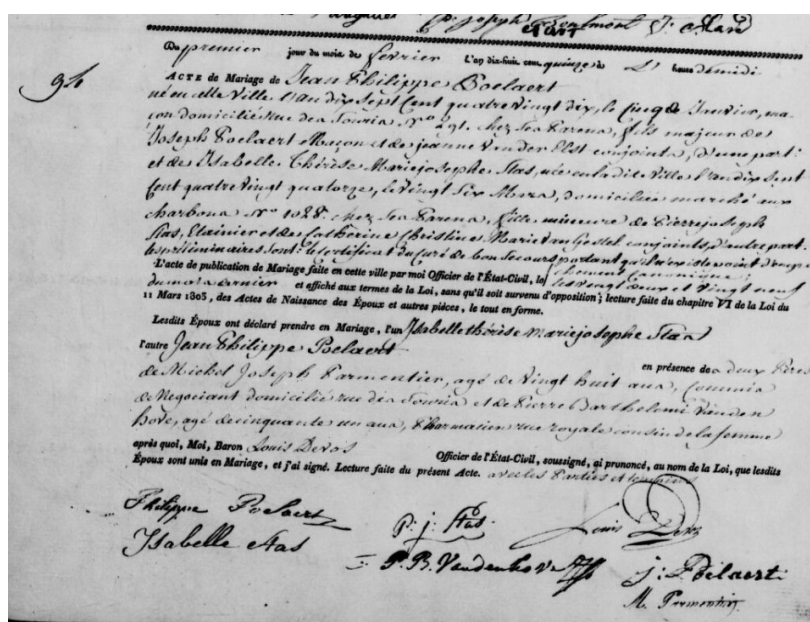 P. Joseph J. Stas
Du premier jour du mois de fevrier L'an dix-huit cent quinze à heures de midi
94
ACTE de Mariage de Jean Philippe Poelaert
né en cette Ville l'an dix Sept Cent quatre vingt dix, le Cinq de Janvier, ma-
çon domicilié rue des Souris N° 291. chez Ses Parens, fils majeur de
Joseph Poelaert Maçon et de jeanne Vander Elst conjoints, d'une part:
et de Isabelle Thérèse Mariejosephe Stas, née en ladite Ville l'an dix Sept
Cent quatre Vingt quatorze, le Vingt Six Mars, domiciliée marché aux
charbons N° 1028. chez Ses Parens, fille mineure de Pierre joseph
Stas, Etainier et de Catherine Christine Marie Van Gestel conjoints, d'autre part.
les préliminaires sont: le Certificat du Curé de bon Secours portant qu'il n'existe point d'empe-
chement Canonique;
L'acte de publication de Mariage faite en cette ville par moi Officier de l'État-Civil, les vingt deux et vingt neuf
du mois dernier et affiché aux termes de la Loi, sans qu'il soit survenu d'opposition; lecture faite du chapitre VI de la Loi du
11 Mars 1803, des Actes de Naissance des Époux et autres pièces, le tout en forme.
Lesdits Époux ont déclaré prendre en Mariage, l'un Isabelle thérèse mariejosephe Stas
l'autre Jean Philippe Poelaert
en présence des deux Pères
de Michel Joseph Parmentier, agé de Vingt huit ans, Commis
de Negociant domicilié rue des Souris et de Pierre Barthelemi Vanden
hove, agé de cinquante un ans, Pharmacien rue royale cousin de la femme
après quoi, Moi, Baron Louis Devos Officier de l'État-Civil, soussigné, ai prononcé, au nom de la Loi, que lesdits
Époux sont unis en Mariage, et j'ai signé. Lecture faite du présent Acte. avec les Parties et temoins
Philippe Poelaert
P. j. Stas
Louis Devos
Isabelle Stas
P. B. Vandenhove
j: Poelaert
M. Parmentier